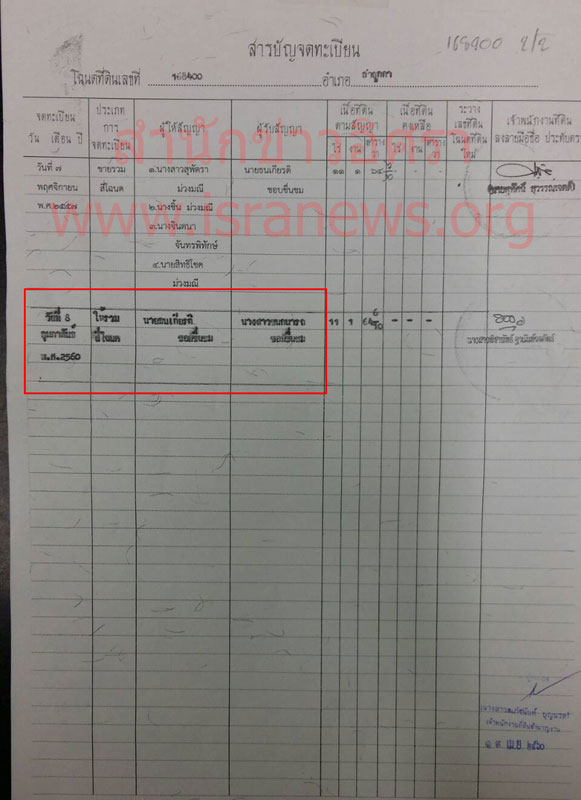 168400 2/2
สารบัญจดทะเบียน
โฉนดที่ดินเลขที่ 168400 อำเภอ ลำลูกกา
จดทะเบียน วัน เดือน ปี
ประเภท การ จดทะเบียน
ผู้ให้สัญญา
ผู้รับสัญญา
เนื้อที่ดิน ตามสัญญา
ไร่ งาน ตาราง วา
เนื้อที่ดิน คงเหลือ
ไร่ งาน ตาราง วา
ระวาง เลขที่ดิน โฉนดที่ดิน ใหม่
เจ้าพนักงานที่ดิน ลงลายมือชื่อ ประทับตรา
สำนักข่าวอิศรา
www.isranews.org
วันที่ ๗ ขายรวม ๑.นางสาวสุพัตรา นายธนเกียรติ ๑๑ ๑
พฤศจิกายน สี่โฉนด ม่วงมณี ชอบชื่นชม
พ.ศ.๒๕๔๗ ๒.นางชื้น ม่วงมณี
๓.นางจินตนา
จันทรพิทักษ์
๔.นายสิทธิโชค
ม่วงมณี
วันที่ 8 ให้รวม นายธนเกียรติ นางสาว 11 1 - - -
กุมภาพันธ์ สี่โฉนด ชอบชื่นชม ชอบชื่นชม
พ.ศ.2560
เจ้าพนักงานที่ดินชำนาญงาน
เม.ย ๒๕๖๐